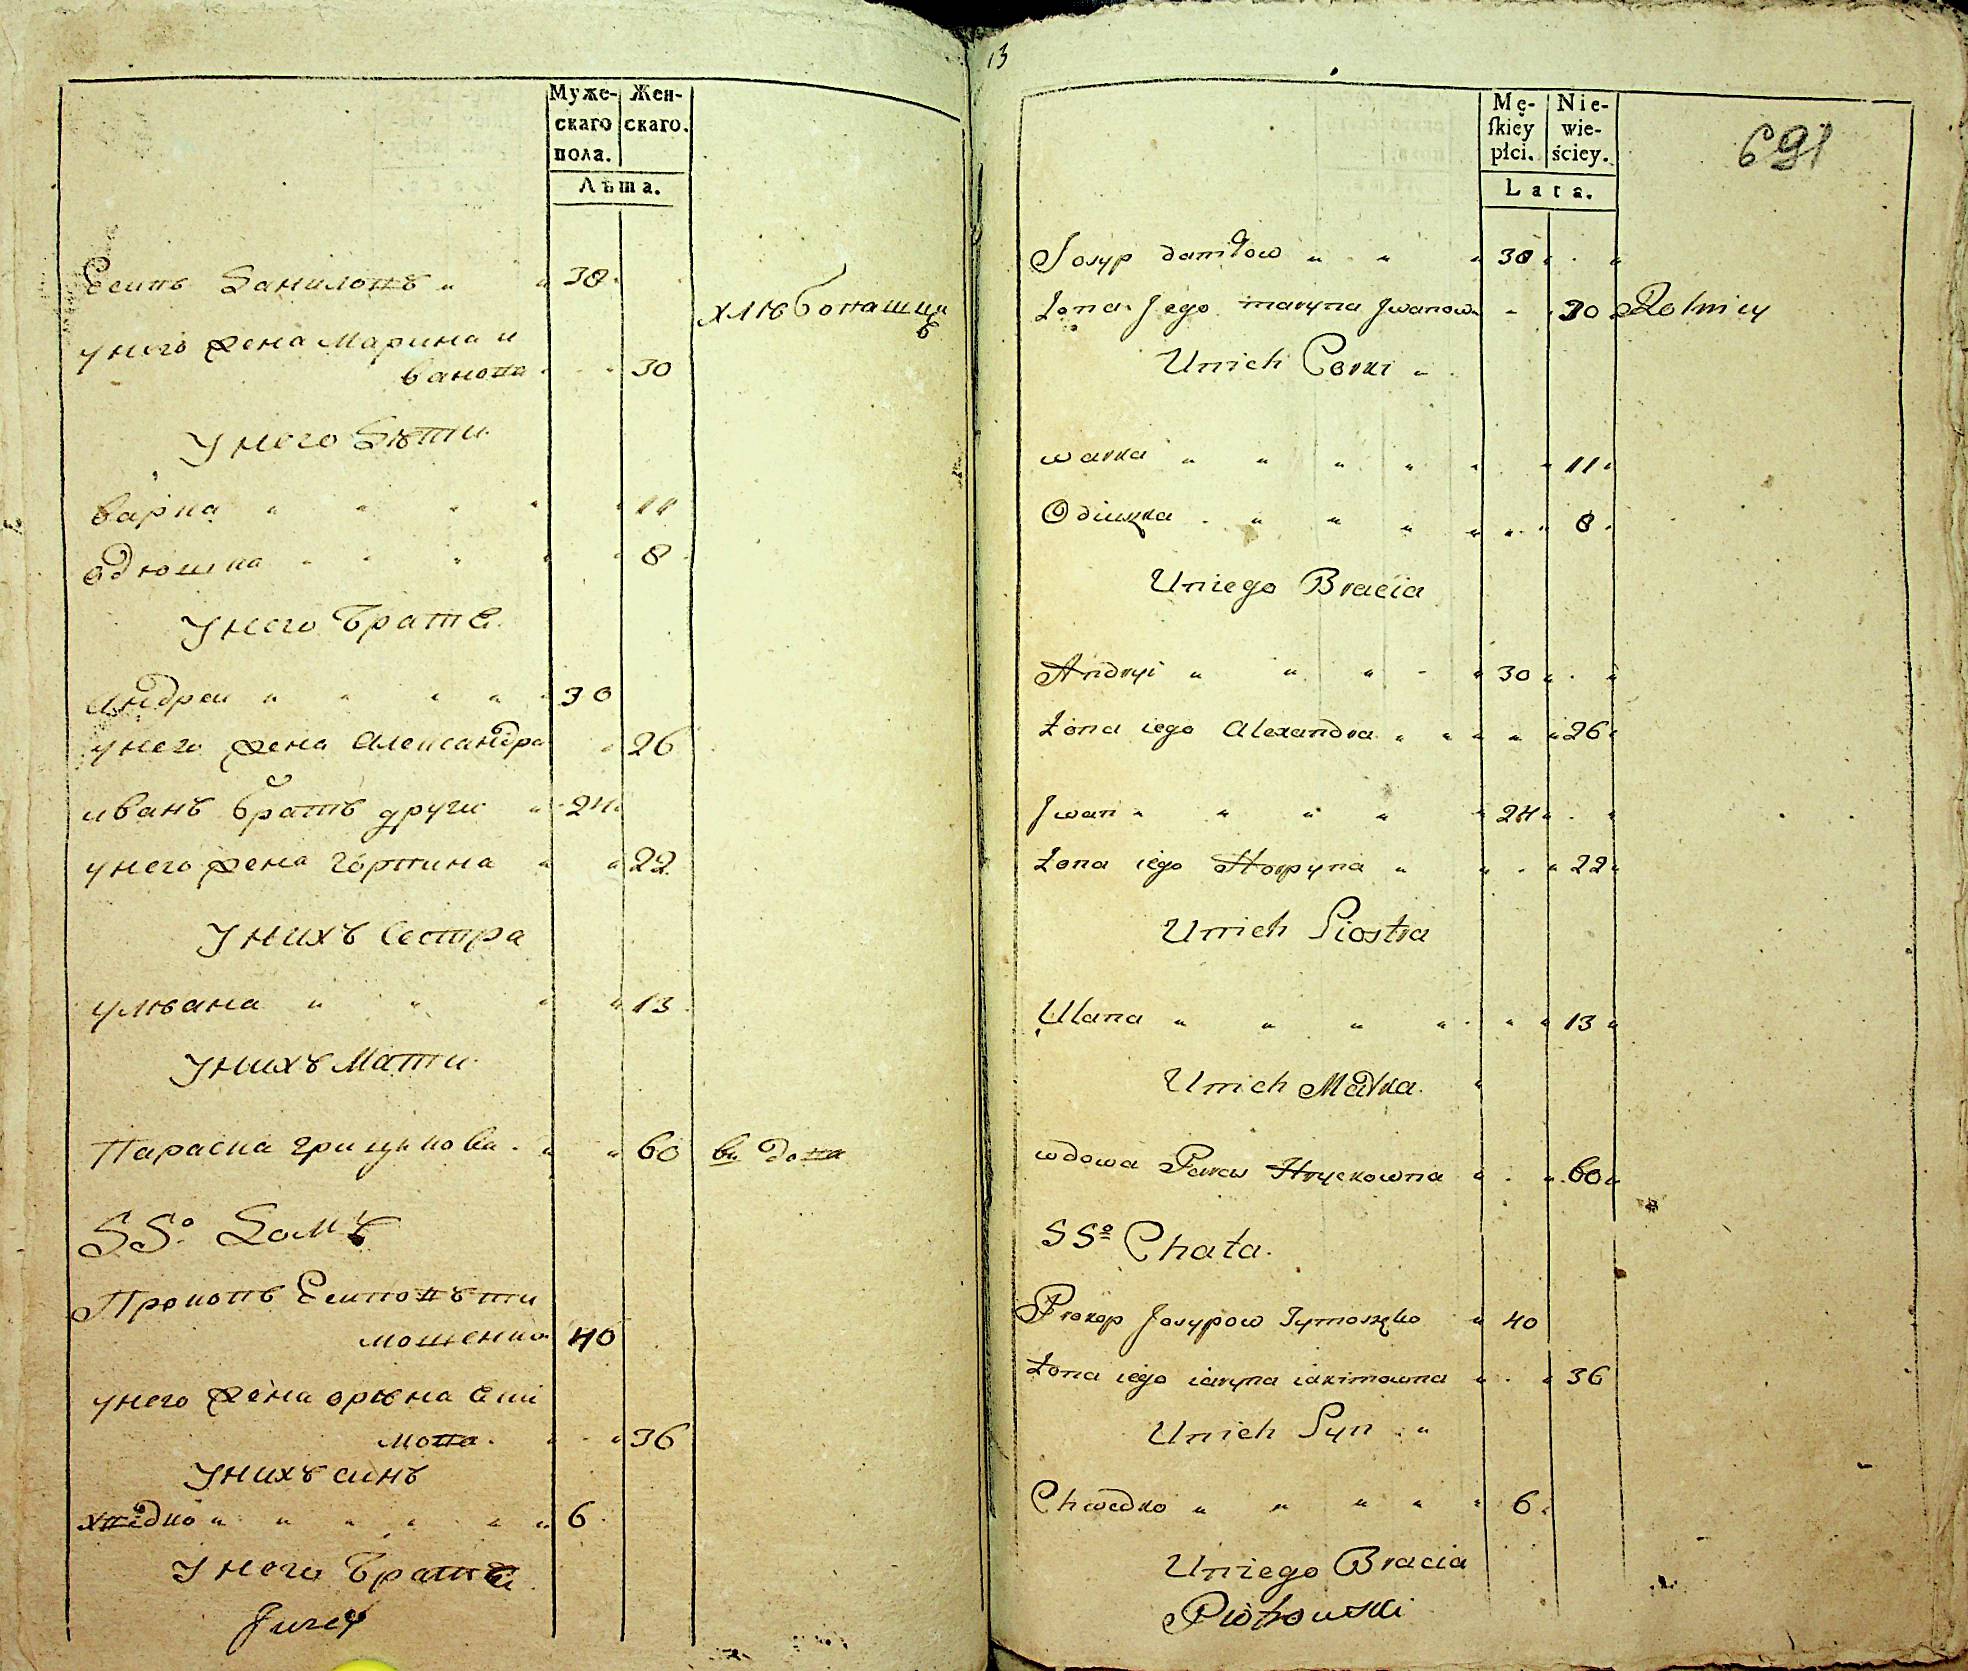 Муже-
скаго
пола.
Жен-
скаго.
Лѣта.
Есипъ Данилопъ 38
хлѣбопашцъ
унего жена Марина и
ванопа 30
Унего Дѣти
варка 11
одюшка 8
Унего Братѣ
андреи 30
унего жена александра 26
иванъ братъ други 24
унего жена гъ́рпина 22
Унихъ Сестра
улѣана 13
Унихъ Мати
Параска грицкова 60 вдопа
55º Домъ
Прокопъ Есипопъ ти
мошенко 40
унего жена орѣна еки
мопа 36
Унихъ синъ
хпедко 6
Унего Братѣ
13
Mę-
ſkiey
płci.
Nie-
wie-
ściey.
Lata.
691
Josyp daniłow 38
żona Jego maryna Jwanow 30 Rolnicy
Unich Corki
warka 11
Odiuszka 8
Uniego Bracia
Andryi 30
żona iego Alexandra 26
Jwan 24
żona iego Horpyna 22
Unich Siostra
Ulana 13
Unich Matka
wdowa Paras Hryckowna 60
55º Chata.
Prokop Josypow Tymoszko 40
żona iego iaryna iakimowna 36
Unich Syn
Chwedko 6
Uniego Bracia
Piotrowski